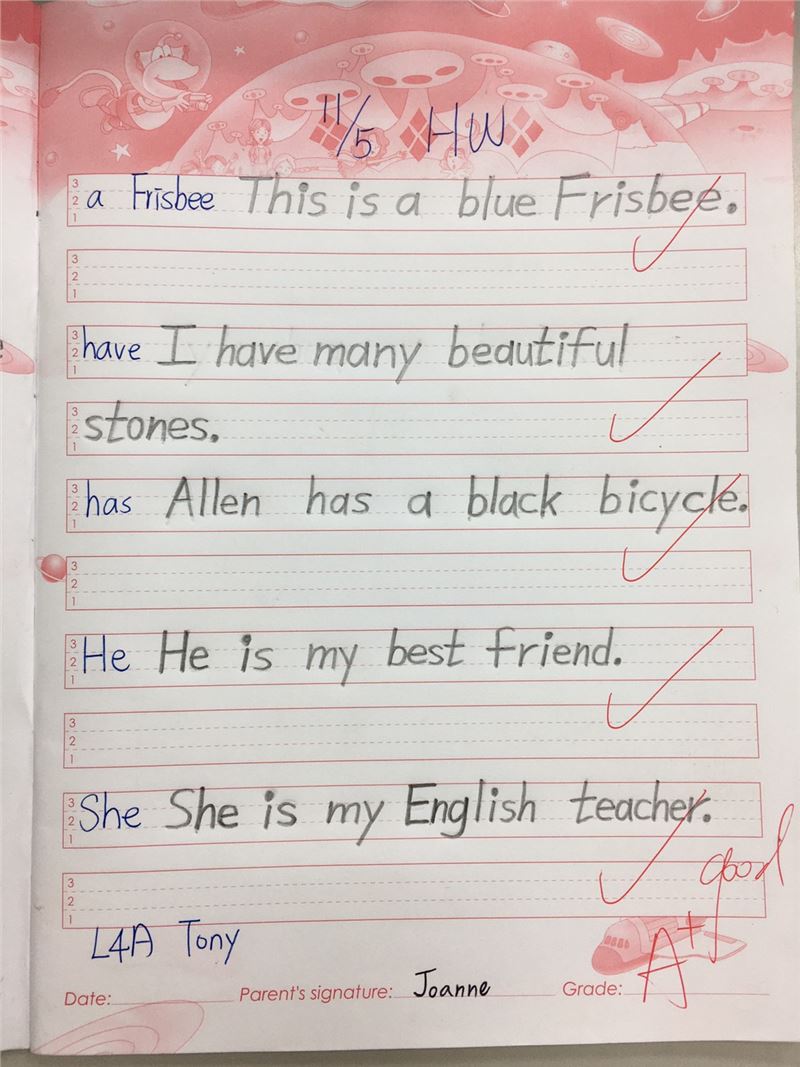 11/5 HW
3 2 1 a Frisbee This is a blue Frisbee.
3 2 1
3 2 1 have I have many beautiful
3 2 1 stones.
3 2 1 has Allen has a black bicycle.
3 2 1
3 2 1 He He is my best friend.
3 2 1
3 2 1 She She is my English teacher.
3 2 1
good
L4A Tony
A+
Date: Parent's signature: Joanne Grade: